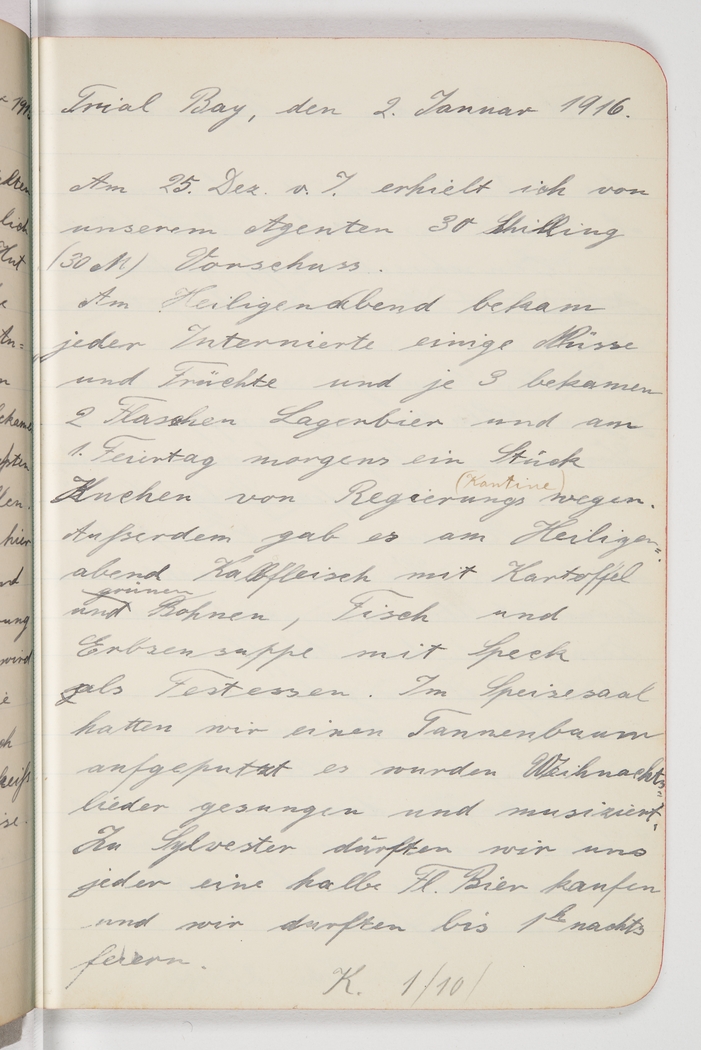 Trial Bay, den 2. Januar 1916.
Am 25. Dez. v. J. erhielt ich von
unserem Agenten 30 Shilling
(30 M) Vorschuss.
Am Heiligenabend bekam
jeder Internierte einige Nüsse
und Früchte und je 3 bekamen
2 Flaschen Lagerbier und am
1. Feiertag morgens ein Stück
(Kantine)
Kuchen von Regierungs wegen.
Aufserdem gab es am Heiligen=
abend Kalbfleisch mit Kartoffel
grünen
und Bohnen, Fisch und
Erbsensuppe mit Speck
als Festessen. Im Speisesaal
hatten wir einen Tannenbaum
aufgeputzt es wurden Weihnachts=
lieder gesungen und musiziert.
Zu Sylvester dürften wir uns
jeder eine halbe Fl. Bier kaufen
und wir durften bis 1h nachts
feiern.
K. 1/10/